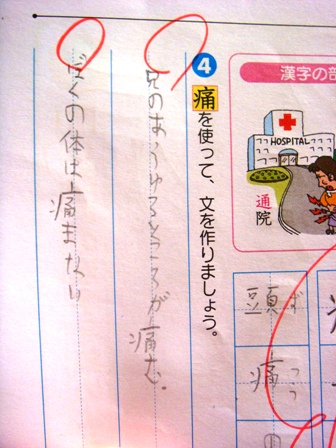 漢字の部
HOSPITAL
通院
❹
痛を使って、文を作りましょう。
頭痛
ずつう
兄のあらゆるところが痛む。
ぼくの体は痛まない